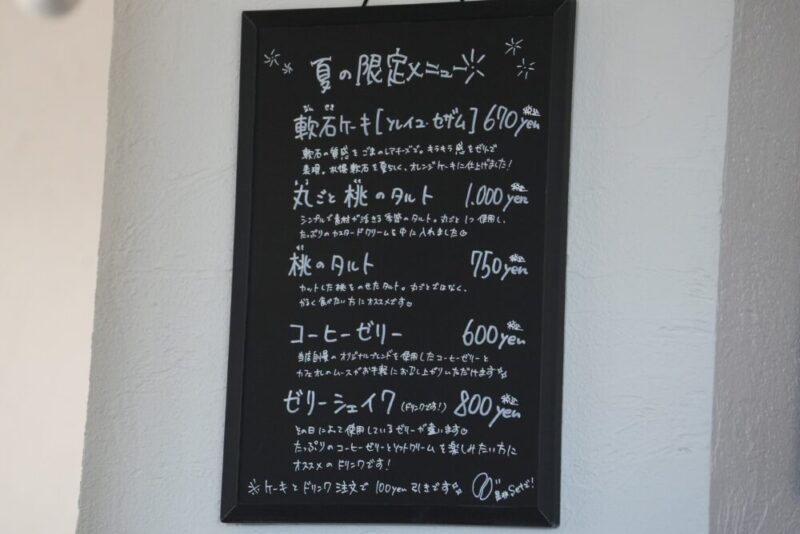 夏の限定メニュー
なんせき
軟石ケーキ[ソレイユ・セザム] 670yen 税込
軟石の質感をごまのレアチーズで。キラキラ感をゼリーで
表現。札幌軟石を夏らしく、オレンジケーキに仕上げました!
まる もも
丸ごと桃のタルト 1.000yen 税込
シンプルで素材が活きる季節のタルト。丸ごと1つ使用し、
たっぷりのカスタードクリームを中に入れました
もも
桃のタルト 750yen 税込
カットした桃をのせたタルト。丸ごとではなく、
かるく食べたい方にオススメです
コーヒーゼリー 600yen 税込
当店自慢のオリジナルブレンドを使用したコーヒーゼリーと
カフェオレのムースがお手軽にお召し上がりいただけます
ゼリーシェイク(ドリンクです!) 800yen 税込
その日によって使用しているゼリーが違います
たっぷりのコーヒーゼリーとソフトクリームを楽しみたい方に
オススメのドリンクです!
※ケーキとドリンク注文で100yen引きです Setで!